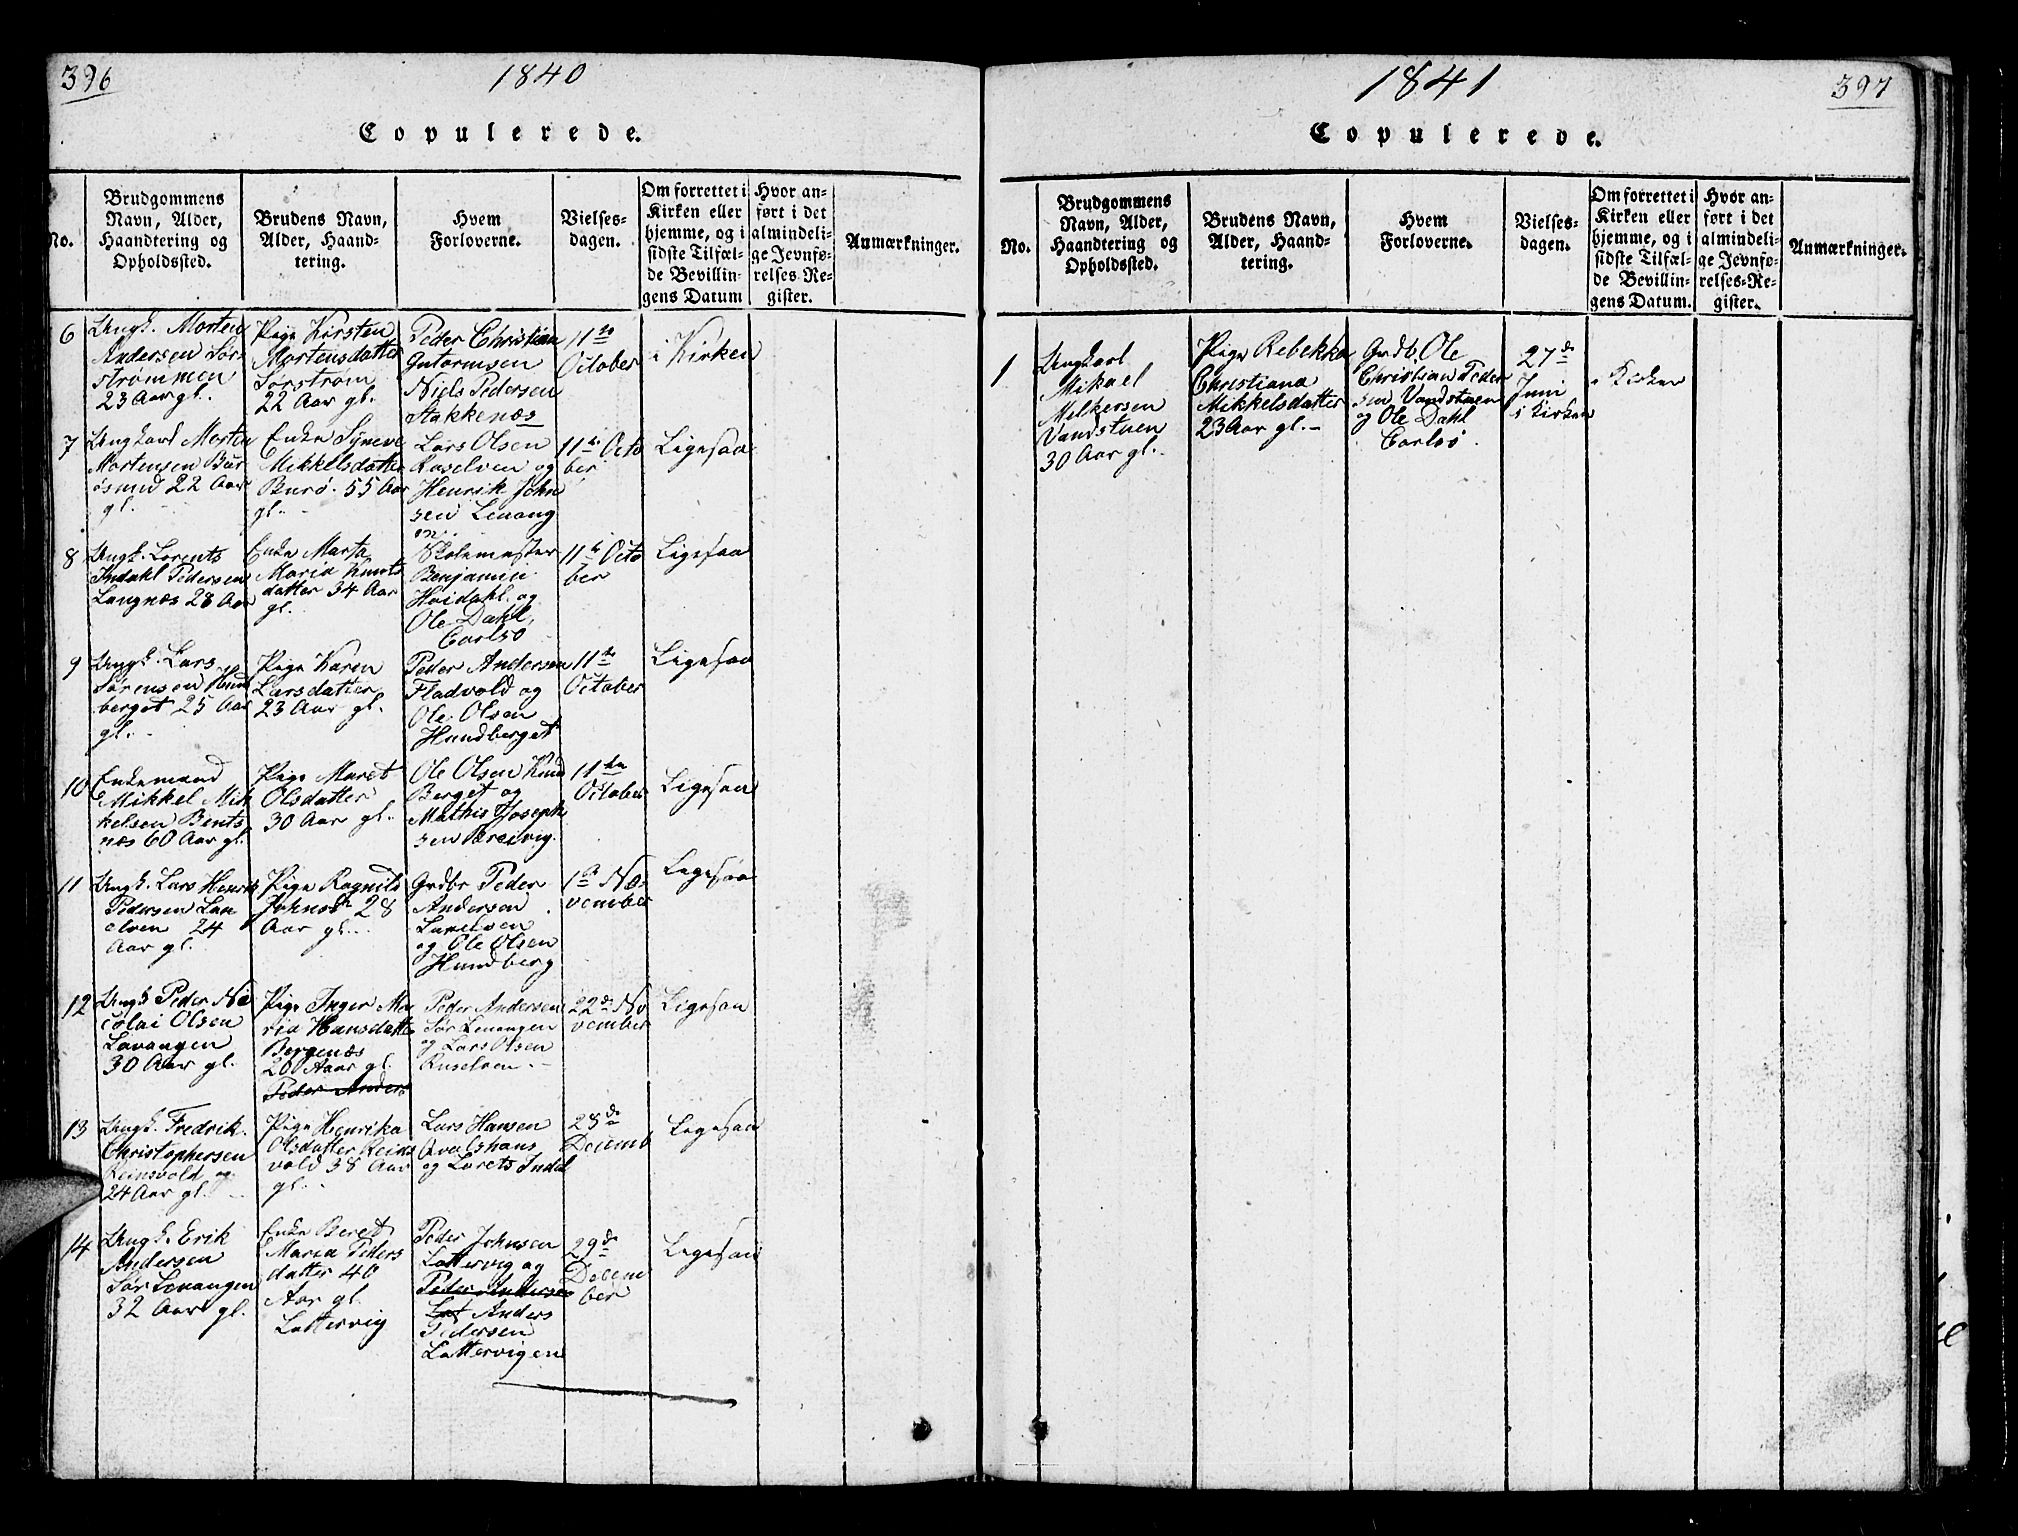 396
1840
Copulerede.
No.
Brudgommens
Navn, Alder,
Haandtering og
Opholdssted.
Brudens Navn,
Alder, Haand-
tering.
Hvem
Forloverne.
Vielses-
dagen.
Om forrettet i
Kirken eller
hjemme, og i
sidste Tilfæl-
de Bevillin-
gens Datum
Hvor an-
ført i det
almindeli-
ge Jevnfø-
relses-Re-
gister.
Anmærkninger.
6
Ungk. Morten
Andersen Sør
strømmen
23 Aar gl.
Pige Kirsten
Mortensdatter
Sørstrøm
22 Aar gl.
Peder Christian
Gutormsen
Niels Pedersen
Stakkenæs
11te
October
i Kirken
7
Ungkarl Morten
Mortensen Bur
øsund 22 Aar
gl.
Enke Syneve
Mikkelsdatter
Burø. 55 Aar
gl.
Lars Olsen
Ruselven og
Henrik John
sen Levang
en.
11te Octo
ber
Ligesaa
8
Ungk. Lorents
Indahl Pedersen
Langnæs 28 Aar
Enke Marta
Maria Knuts
datter 34 Aar
gl.
Skolemester
Benjamin
Hvidahl og
Ole Dahl,
Carlsø
11te Octo
ber
Ligesaa
9
Ungk. Lars
Sørensen Hund
berget 25 Aar
gl.
Pige Karen
Larsdatter
23 Aar gl.
Peder Andersen
Fladvold og
Ole Olsen
Hundberget
11te
October
Ligesaa
10
Enkemand
Mikkel Mik
kelsen Bents
næs 60 Aar gl.
Pige Maret
Olsdatter
30 Aar gl.
Ole Olsen Hund
Berget og
Mathis Joseph
sen Breivig.
11te
October
Ligesaa
11
Ungk. Lars Henrik
Pedersen Lan
elven 24
Aar gl.
Pige Ragnild
Johnsd. 28
Aar gl.
Grdbr Peder
Andersen
og Ole Olsen
Hundberg
1ste No
vember
Ligesaa
12
Ungk Peder Ni
colai Olsen
Lavangen
30 Aar gl.
Pige Inger Ma
ria Hansdatter
Bergenæs
20 Aar gl.
Peder Anders
Peder Andersen
Sør Levangen
og Lars Olsen
Ruselven.
22de No
vember
Ligesaa
13
Ungk. Fredrik
Christophersen
Reinsvold og
24 Aar gl.
Pige Henrika
Olsdatter Reins
vold 38 Aar
gl.
Lars Hansen
Qvalshaus
og Lorets Indal
28de
Decemb
Ligesaa
14
Ungk. Erik
Andersen
Sør Levangen
32 Aar gl.
Enke Beret
Maria Peders
datter 40
Aar gl.
Lattervig
Peder Johnsen
Lattervig og
Peder Andersen
Lat Anders
Pedersen
Lattervigen
29de
Decem
ber
Ligesaa
1841
397
Copulerede.
No.
Brudgommens
Navn, Alder,
Haandtering og
Opholdssted.
Brudens Navn,
Alder, Haand-
tering.
Hvem
Forloverne.
Vielses-
dagen.
Om forrettet i
Kirken eller
hjemme, og i
sidste Tilfæl-
de Bevillin-
gens Datum.
Hvor an-
ført i det
almindeli-
ge Jevnfø-
relses-Re-
gister.
Anmærkninger.
1
Ungkarl
Mikael
Melkersen
Vandstuen
30 Aar gl.
Pige Rebekka
Christiana
Mikkelsdatter
23 Aar gl.
Grdb. Ole
Christian Peder
sen Vandstuen
og Ole Dahl
Carlsø
27de
Juni
i Kirken
i Kirken